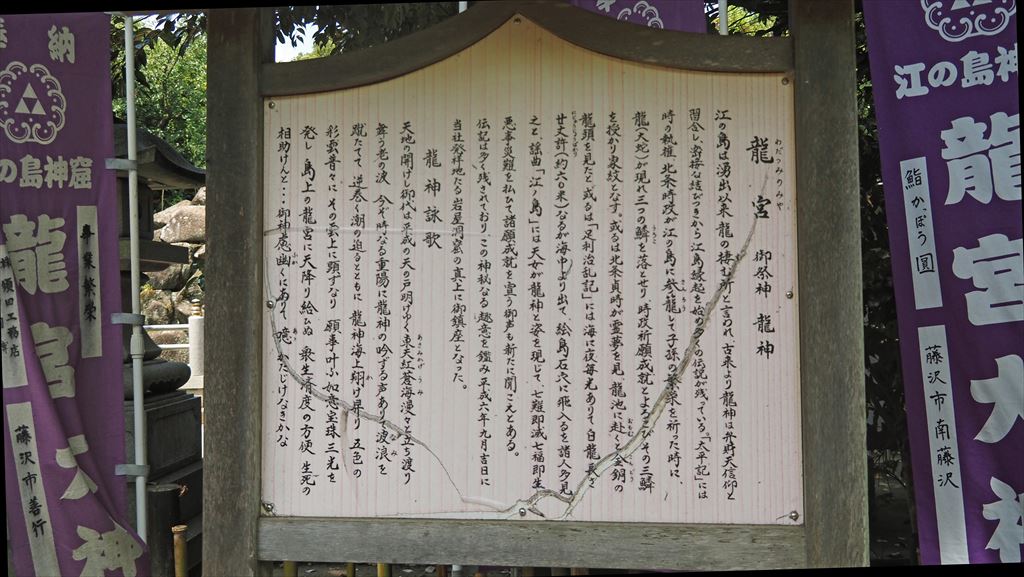 龍宮 御祭神 龍神
わだつみのみや
江の島は湧出以来、龍の棲む所と言われ、古来より龍神は弁財天信仰と
習合し、密接な結びつきから江島縁起を始め多くの伝説が残っている。「太平記」には
時の執権、北条時政が江の島に参籠して子孫の繁栄を祈った時に
龍(大蛇)が現れ三つの鱗を落とせり 時政祈願成就とよろこびその三鱗
を授かり家紋となす。或るは北条貞時が霊夢を見、龍池に赴くと金銅の
龍頭を見たと、或るは「足利治乱記」には海に夜毎光ありて、白龍長さ
廿丈許り(約六〇米)なるが海中より出て、絵島石穴に飛入るを諸人多見
之と、謡曲「江ノ島」には天女が龍神と姿を現じて、七難即滅七福即生
悪事災難を払ひて諸願成就を宣う御声も新たに聞こえとある。
伝記は多く残されており、この神秘なる趣意を鑑み平成六年九月吉日に
当社発祥地たる岩屋洞窟の真上に御鎮座となった。
龍神詠歌
天地の開けし御代は平成の天の戸明けゆく東天紅蒼海漫々と立ち渡り
舞う老の波 今ぞ時なる重陽に龍神の吟ずる声ありて波浪を
蹴たてて、逆巻く潮の迫るとともに 龍神海上翔け昇り 五色の
彩雲昔々に その雲上に顕すなり 願事叶ふ如意宝珠三光を
発し 島上の龍宮に天降り給ゐぬ 衆生済度の方便 生死の
相助けんと・・・御神慮幽くにありて、噫、かたじけなきかな
奉納
の島神窟
龍宮大神
事業繁栄
藤沢市善行
江の島神
龍宮大神
鮨 かっぽう 圓
藤沢市南藤沢